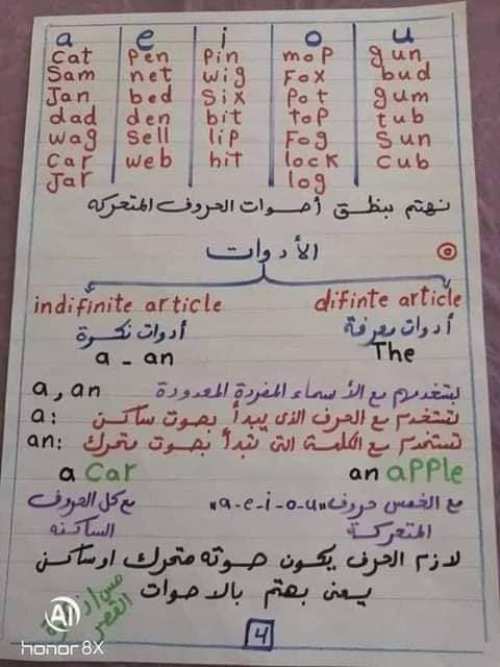 a e i o u
cat pen pin mop gun
Sam net wig Fox bud
Jan bed Six Pot gum
dad den bit top tub
wag Sell lip Fog Sun
Car web hit lock Cub
Jar log
نهتم بنطق أصوات الحروف المتحركه
الأدوات
indifinite article difinte article
أدوات نكرة أدوات معرفة
a - an The
a , an لبتخدمهم مع الأسماء المفردة المعدودة
a: تستخدم مع الحرف الذى يبدأ بصوت ساكن
an: تستخدم مع الكلمة التى تبدأ بصوت متحرك
a Car an apple
مع الخمس حروف "a-e-i-o-u" مع كل الحروف
المتحركة الساكنه
لازم الحرف يكون صوته متحرك او ساكن
يعنى بهتم بالاصوات
4
AI
honor 8X